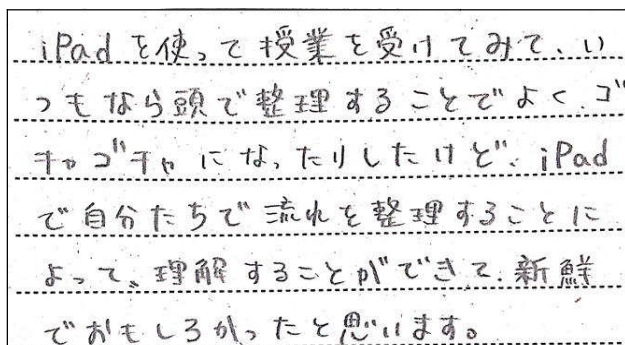 iPadを使って授業を受けてみて、い
つもなら頭で整理することでよく、ゴ
チャゴチャになったりしたけど、iPad
で自分たちで流れを整理することに
よって、理解することができて、新鮮
でおもしろかったと思います。